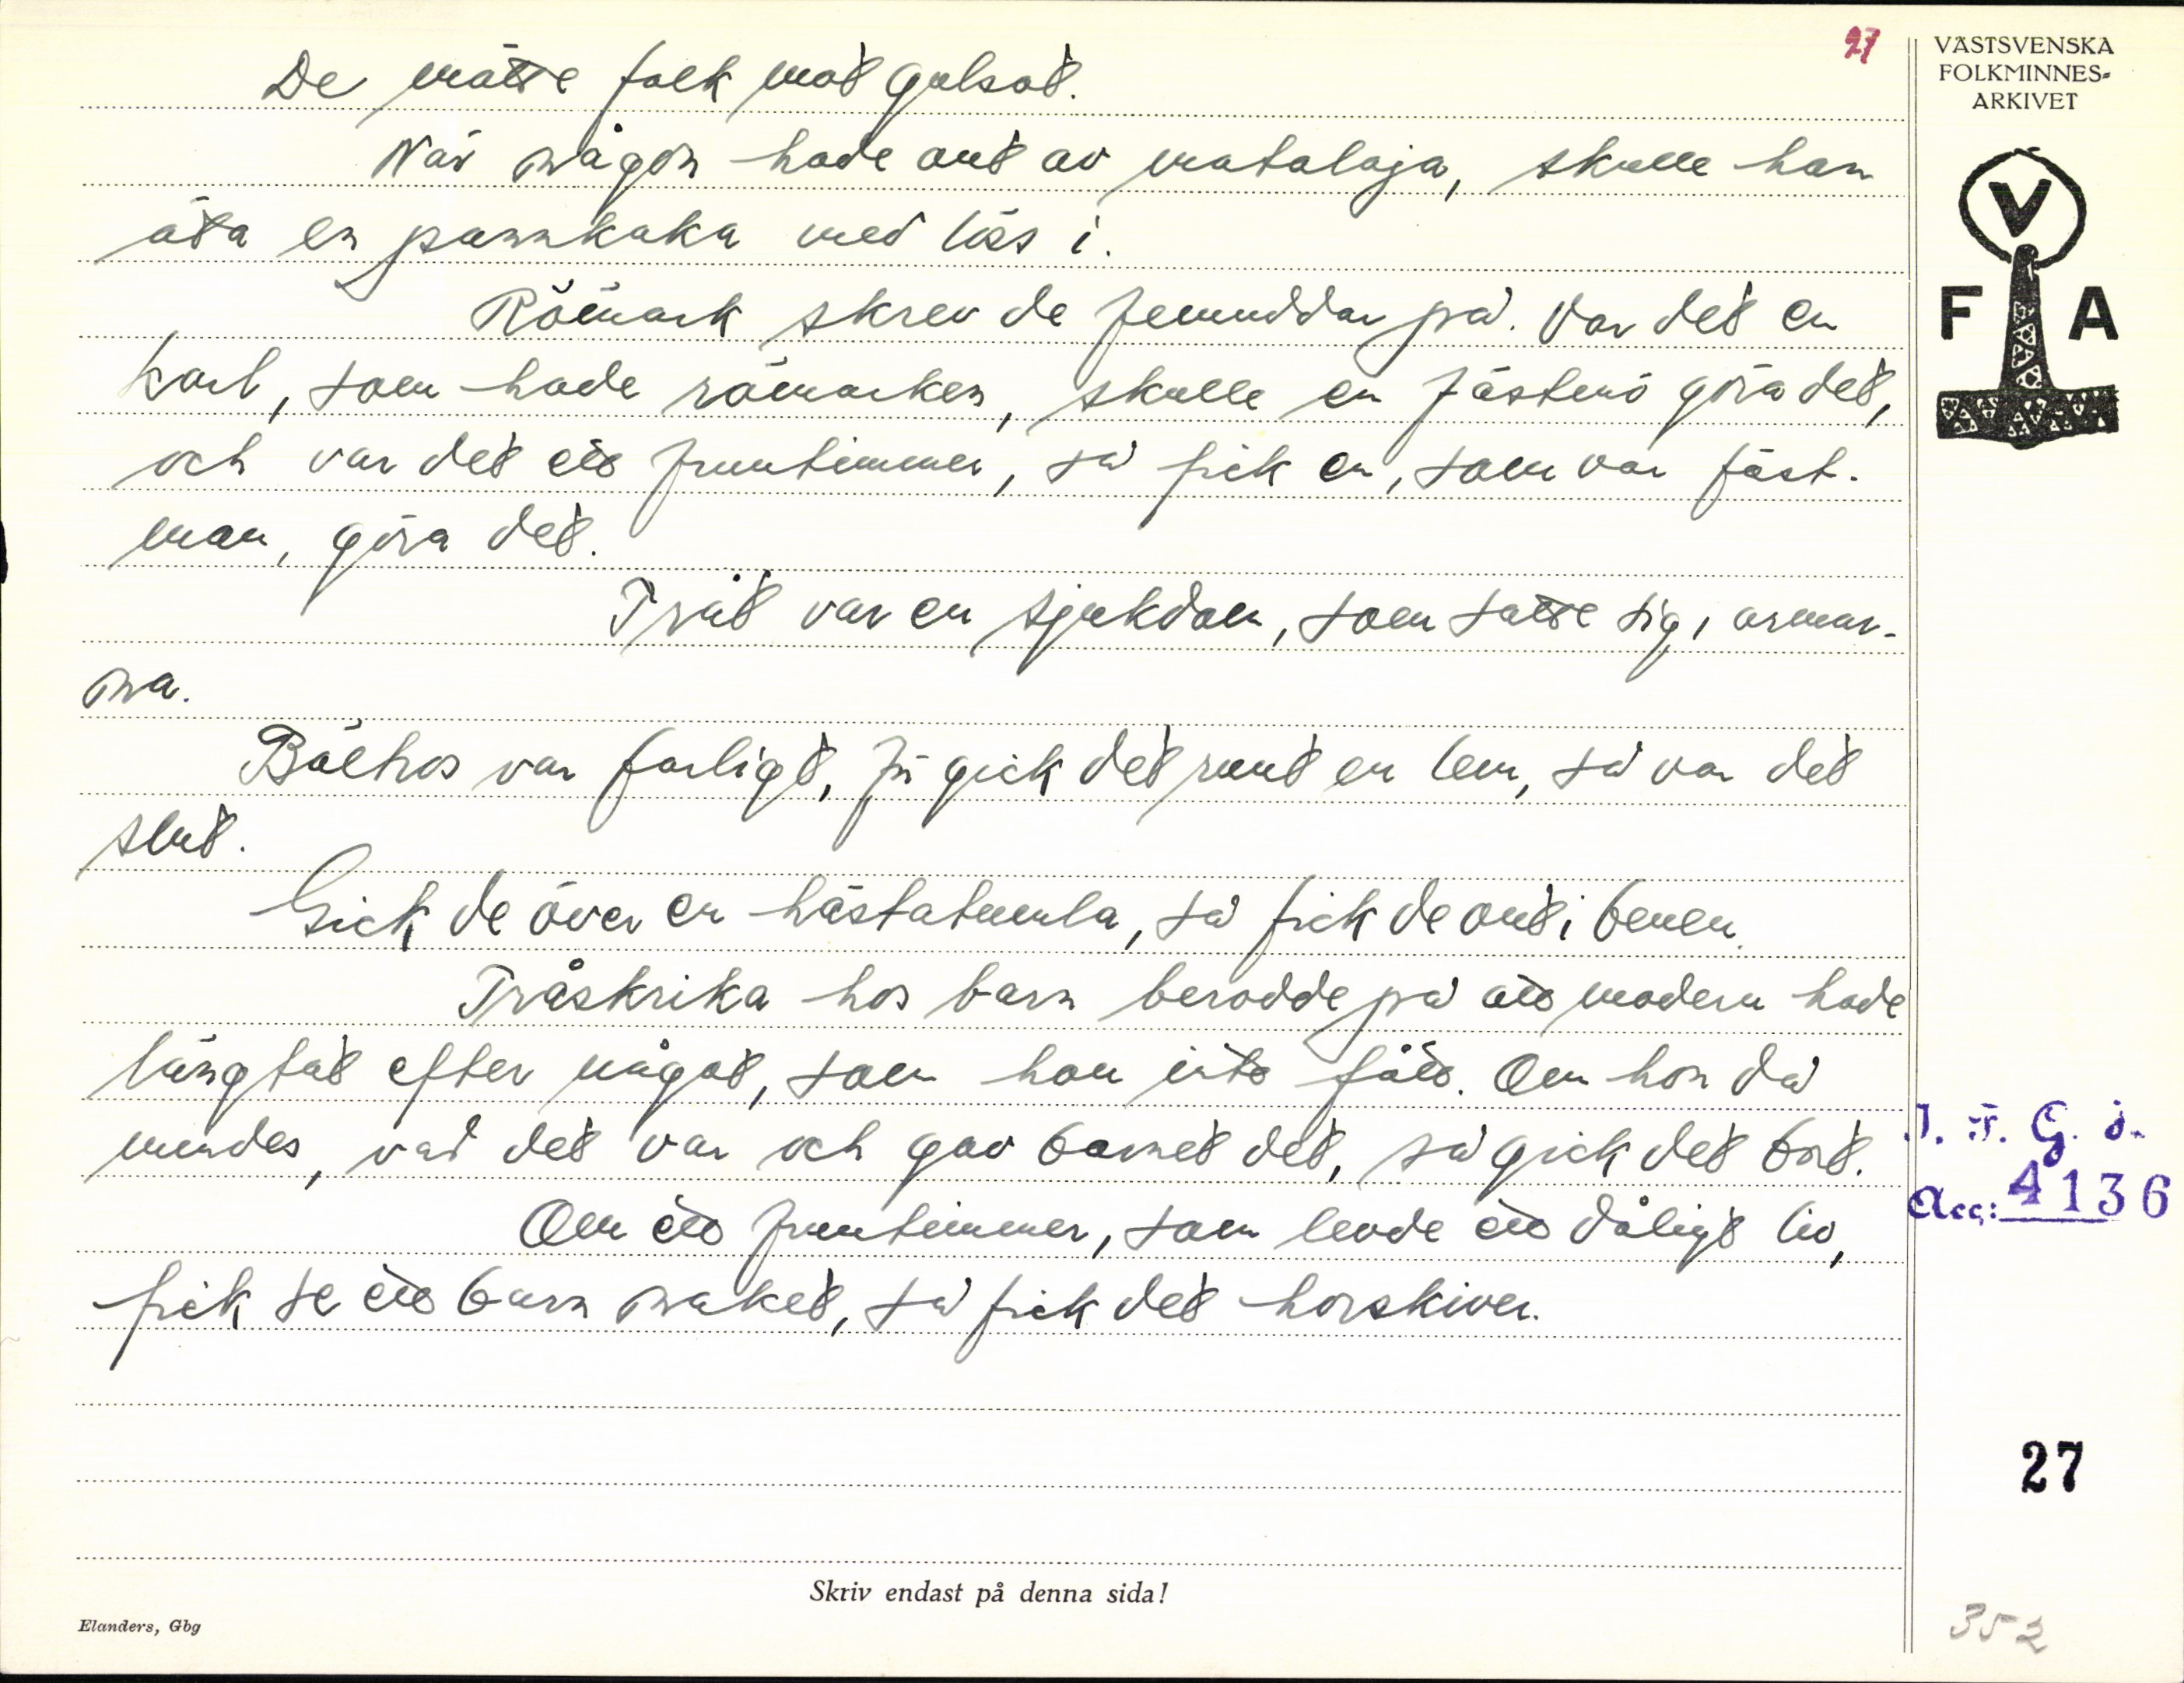 27
VÄSTSVENSKA
FOLKMINNES-
ARKIVET
V
F A
De mätte folk mot gulsot.
När någon hade ont av matalaja, skulle han
äta en pannkaka med löss i.
Römark skrev de femuddar på. Var det en
karl, som hade römarken, skulle en fästemö göra det,
och var det ett fruntimmer, så fick en, som var fäst-
man, göra det.
Tråt var en sjukdom, som satte sig i armar-
na.
Bältros var farligt, fö gick det runt en lem, så var det
slut.
Gick de över en hästatumla, så fick de ont i benen.
Tråskrika hos barn berodde på att modern hade
längtat efter något, som hon inte fått. Om hon då
mindes, vad det var och gav barnet det, så gick det bort.
Om ett fruntimmer, som levde ett dåligt liv,
fick se ett barn naket, så fick det horskiver.
I. F. G. H.
Acc: 4136
27
Skriv endast på denna sida!
Elanders, Gbg
352